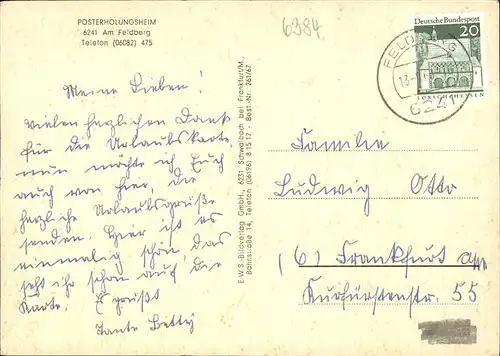 POSTERHOLUNGSHEIM
6241 Am Feldberg
Telefon (06082) 475
6384
Meine Lieben!
Vielen herzlichen Dank
für die Urlaubskarte,
nun möchte ich Euch
auch von hier, die
herzliche Urlaubsgrüße
senden. Hier ist es
einmalig schön, das
seht ihr schon auf die
Karte. Es grüßt
Tante Betty
E W S.-Bildverlag GmbH., 6231 Schwalbach bei Frankfurt/M.,
Bahnstraße 14, Telefon (06196) 8 15 17 · Best.-Nr. 261/67
Deutsche Bundespost
20
LORSCH/HESSEN
FELDBERG
6241
Familie
Ludwig Otto
(6) Frankfurt a/M
Kurfürstenstr. 55